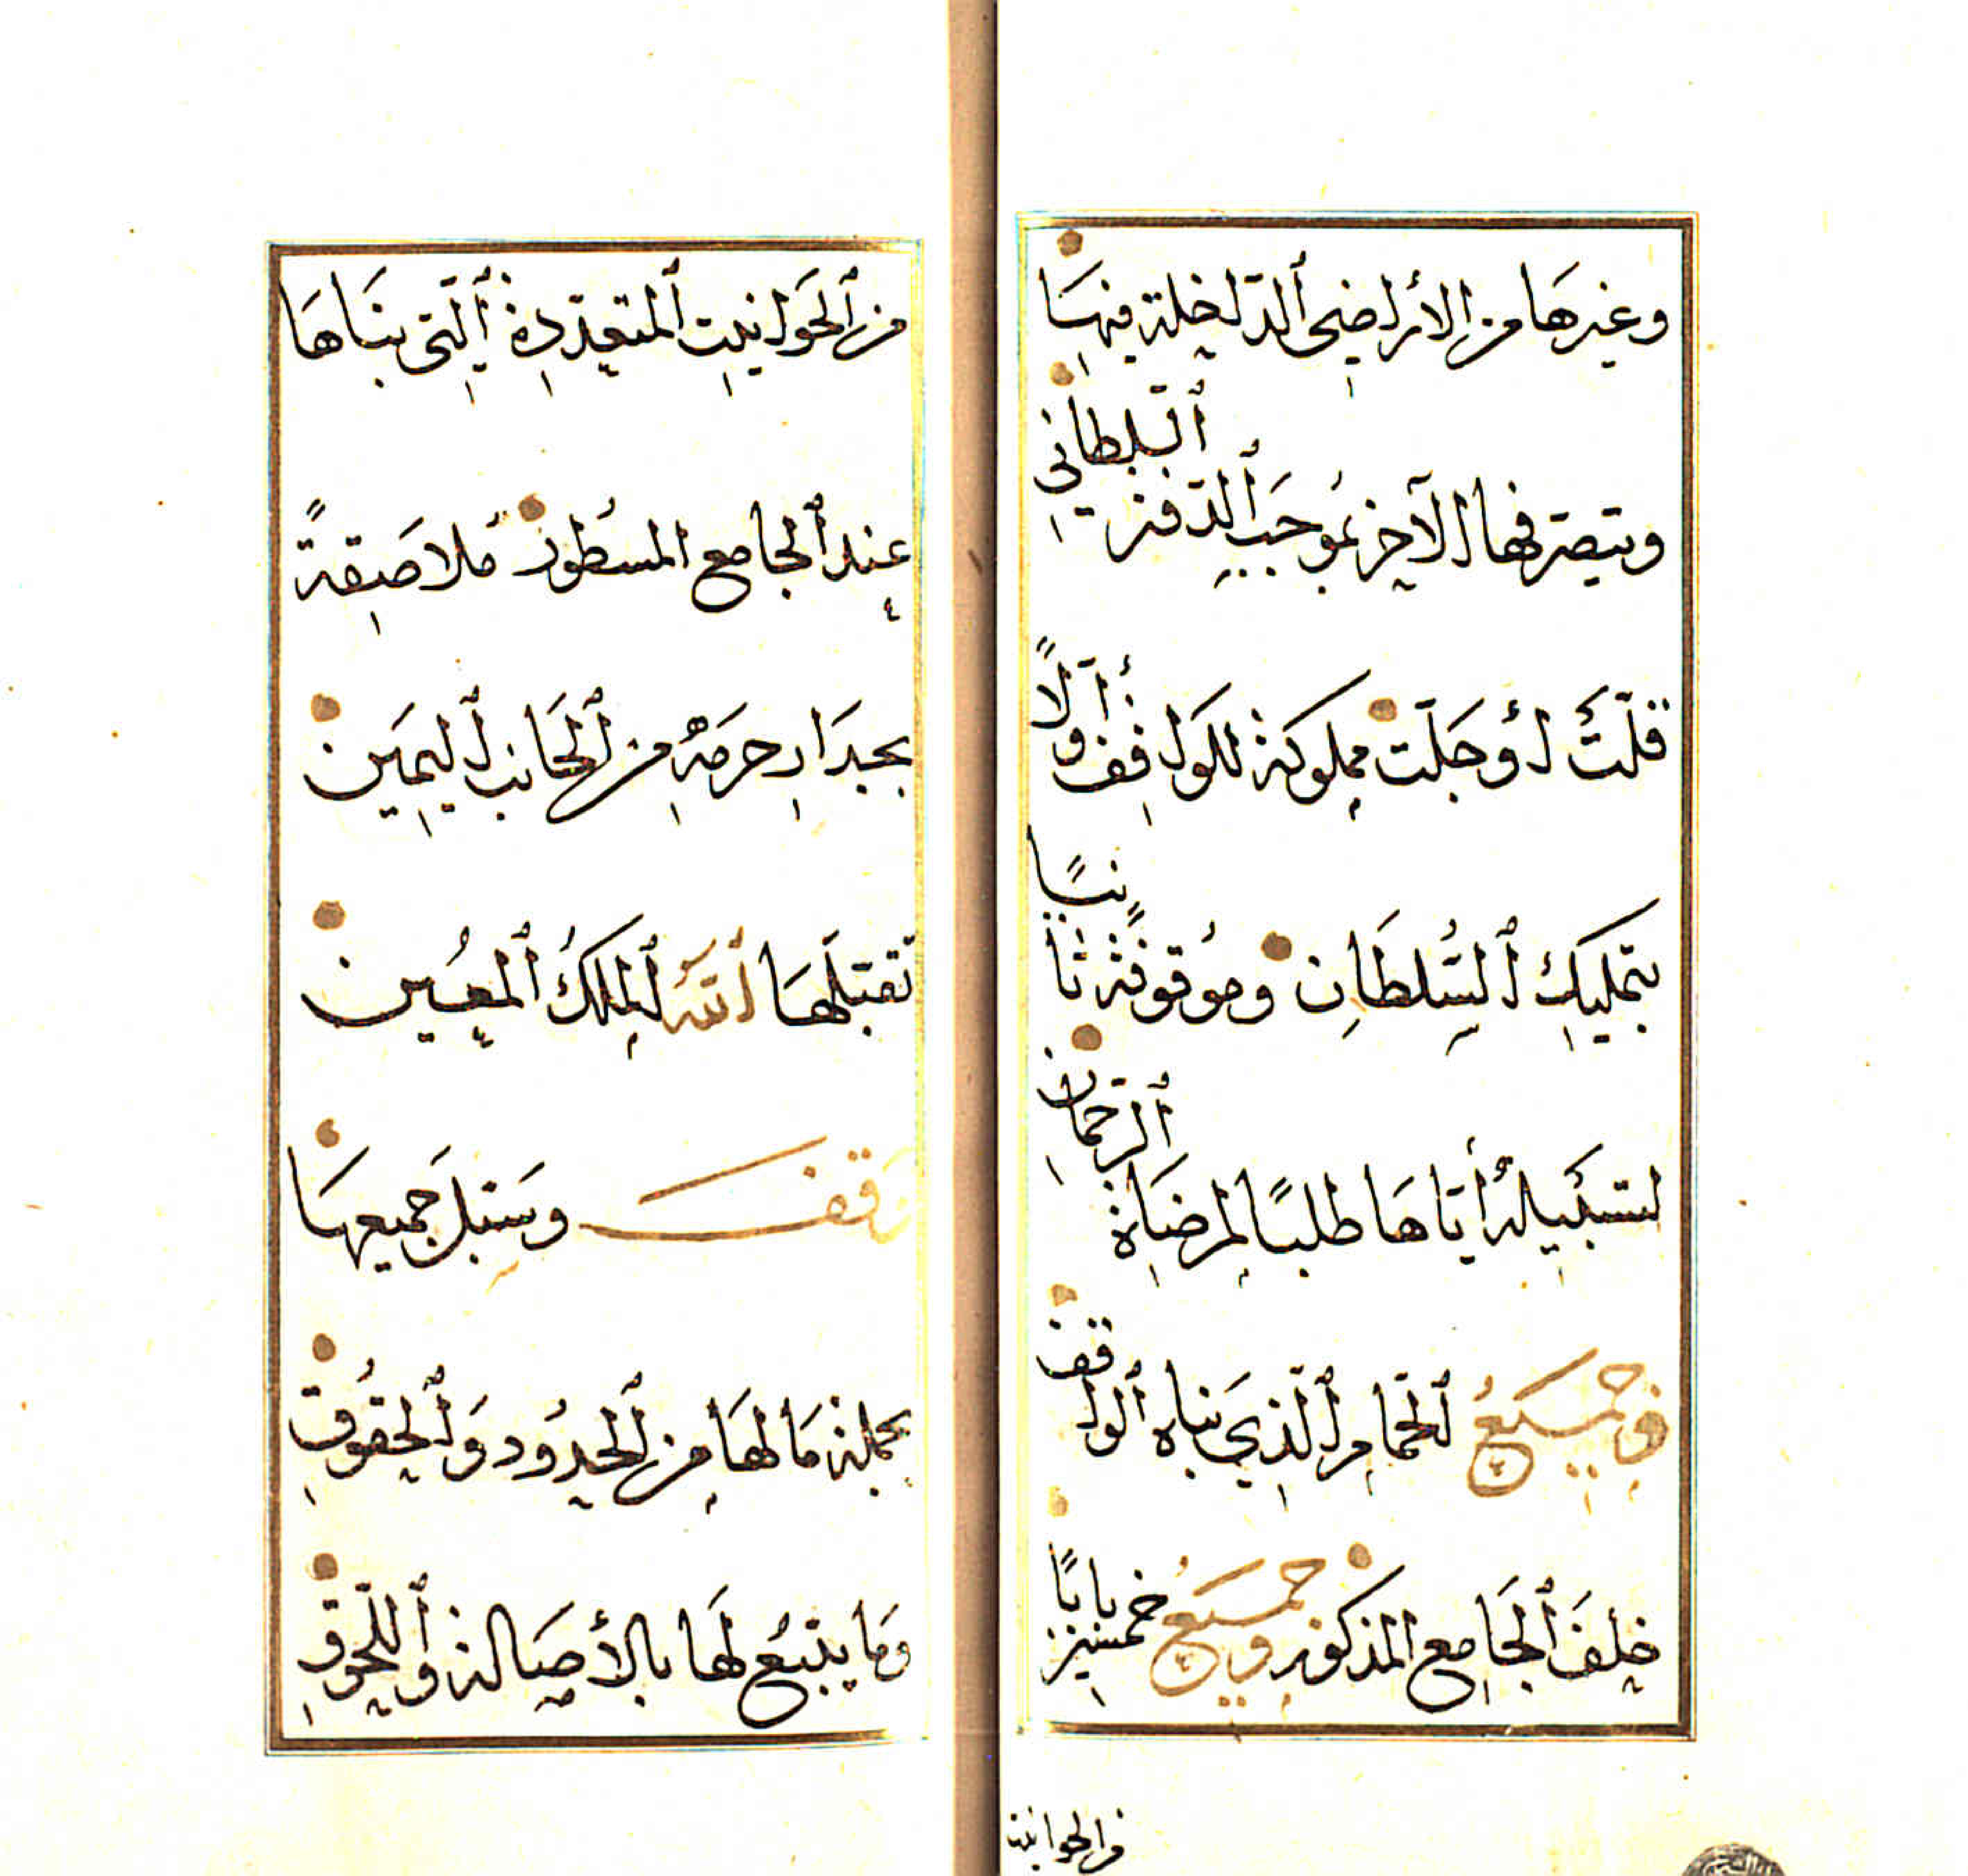 وغيرها من الأراضي الداخلة فيها
ويتصرفها الآخر بموجب الدفتر السلطاني
قلّت أو جلّت مملوكة للواقف أوّلاً
بتمليك السُلطان وموقوفة ثانيًا
لتسبيله أياها طلبًا لمرضاة الرحمان
وجميع الحمام الذي بناه الواقف
خلف الجامع المذكور وجميع خمسين بابًا
من الحوانيت
من الحوانيت المتعدّدة التي بناها
عند الجامع المسطور مُلاصقةً
بجدار حرمه من الجانب اليمين
تقبّلها الله الملكُ المُعين
وقف وسبّل جميعها
بجملة ما لها من الحدود والحقوق
وما يتبع لها بالأصالة واللحوق